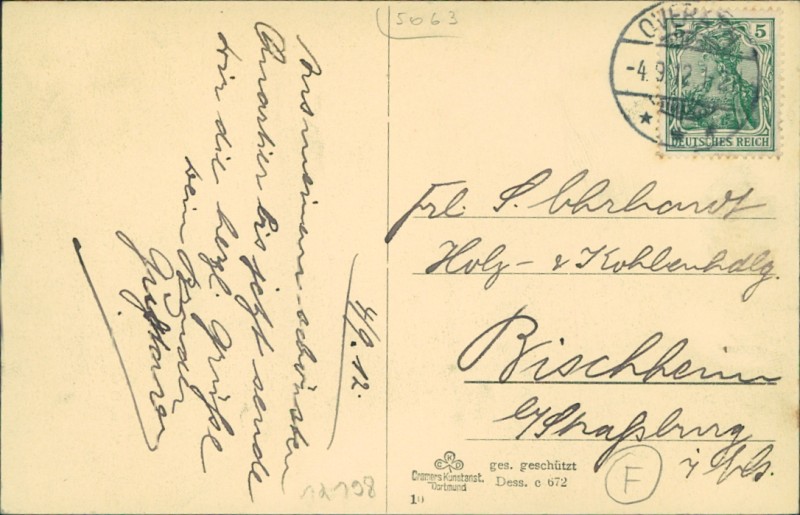 5063
4/9.12.
Aus meinem schönsten
Quartier bis jetzt sende
dir die herzl. Grüße
dein Bruder
Gustav
-4.9.12
5 5
DEUTSCHES REICH
Frl. S. Ehrhardt
Holz- & Kohlenhdlg.
Bischheim
b/Straßburg
i/Els.
CKD
Cramers Kunstanst.
Dortmund
ges. geschützt
Dess. c 672
10
F
12198